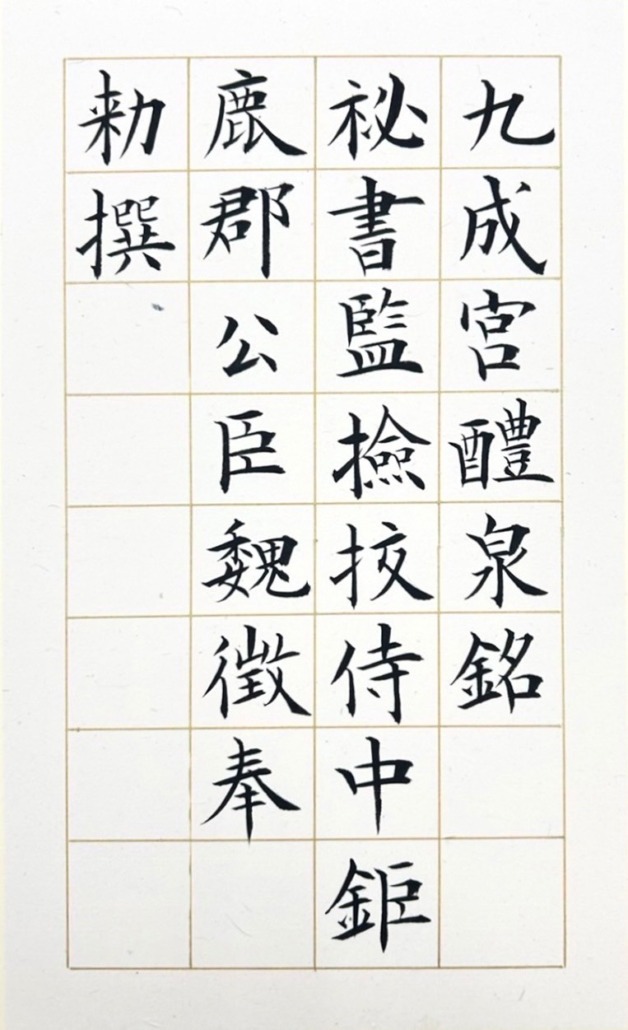 九成宮醴泉銘
祕書監撿挍侍中鉅
鹿郡公臣魏徵奉
勑撰